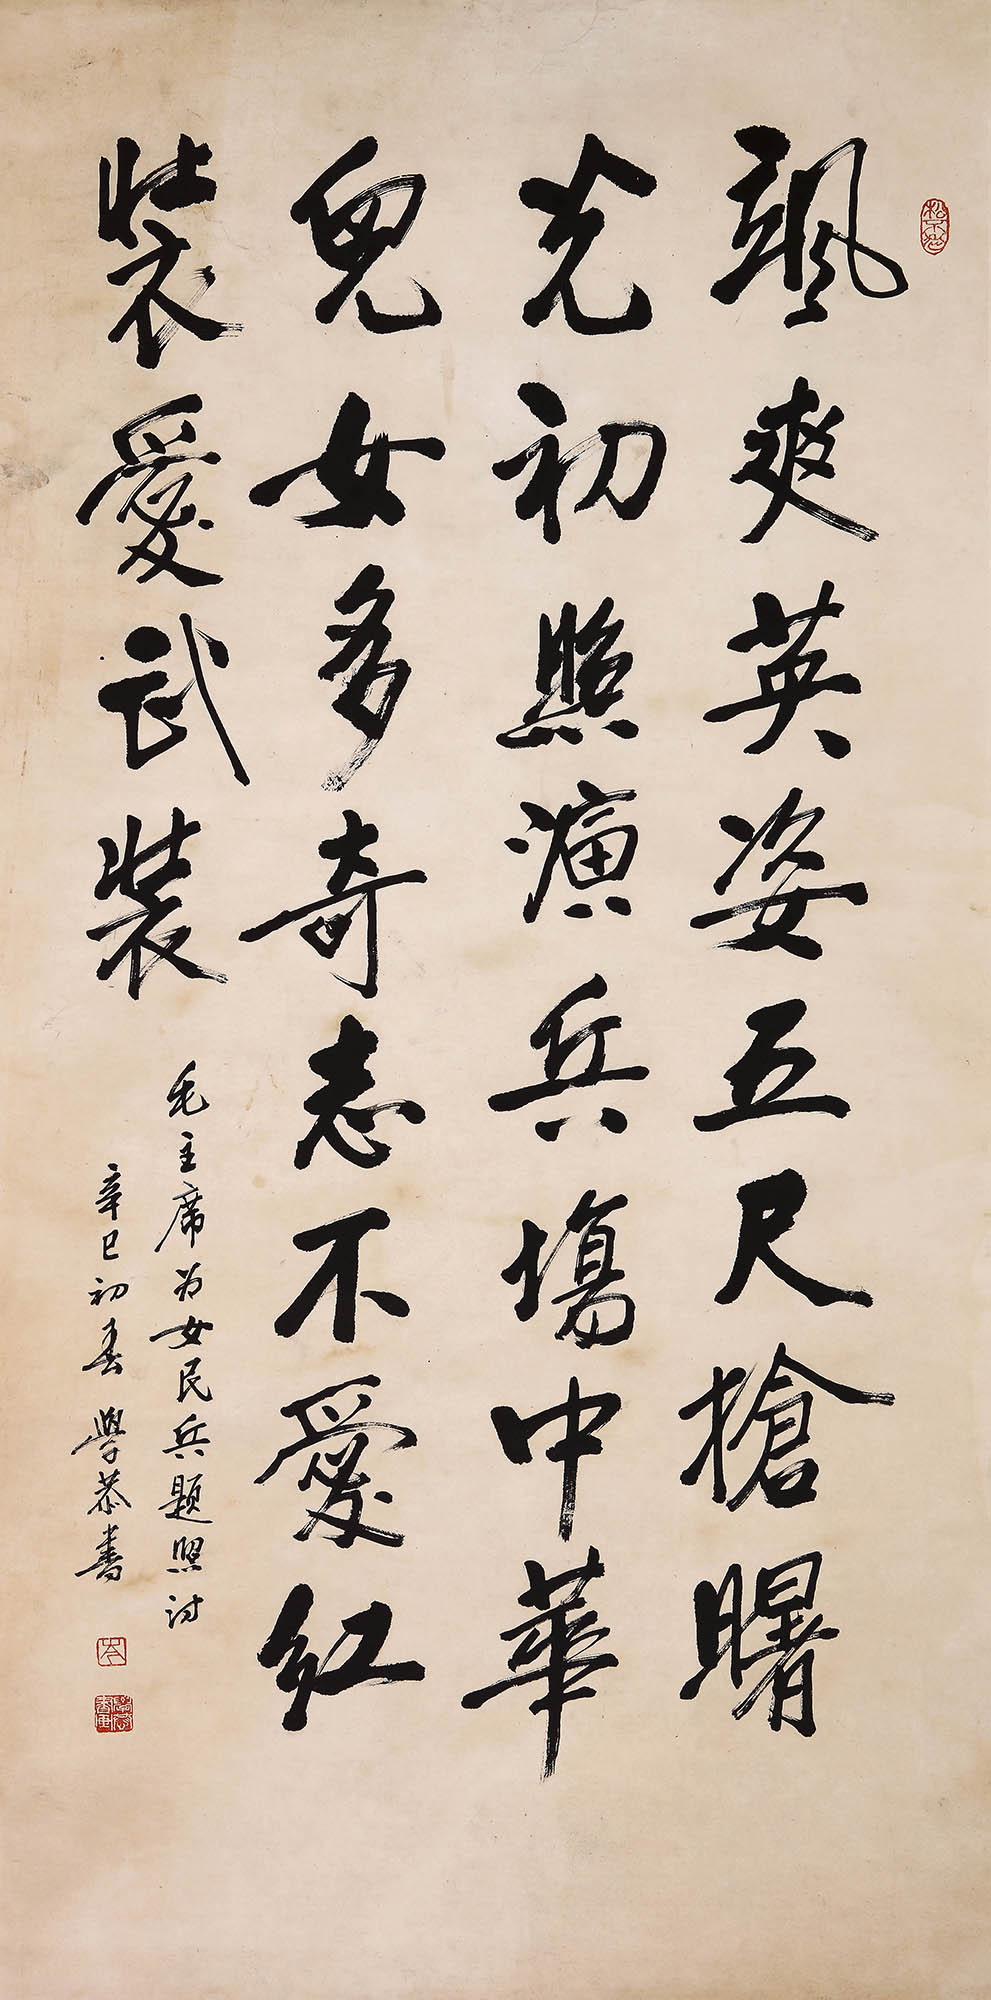 颯爽英姿五尺槍曙
光初照演兵場中華
兒女多奇志不愛紅
裝愛武裝
毛主席为女民兵题照诗
辛巳初春學恭書